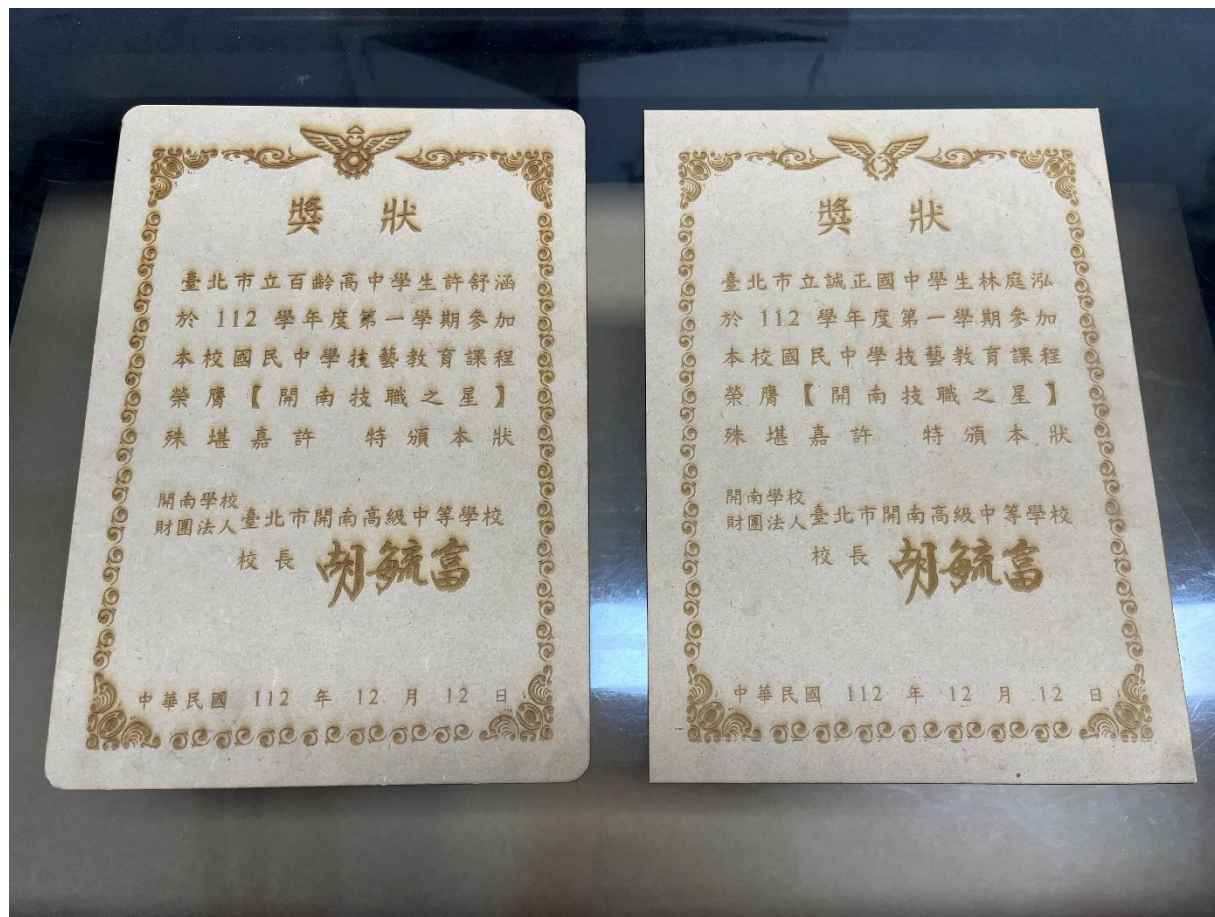 獎狀
臺北市立百齡高中學生許舒涵
於 112 學年度第一學期參加
本校國民中學技藝教育課程
榮膺【開南技職之星】
殊堪嘉許 特頒本狀
開南學校
財團法人臺北市開南高級中等學校
校長 胡毓富
中華民國 112 年 12 月 12 日
獎狀
臺北市立誠正國中學生林庭泓
於 112 學年度第一學期參加
本校國民中學技藝教育課程
榮膺【開南技職之星】
殊堪嘉許 特頒本狀
開南學校
財團法人臺北市開南高級中等學校
校長 胡毓富
中華民國 112 年 12 月 12 日